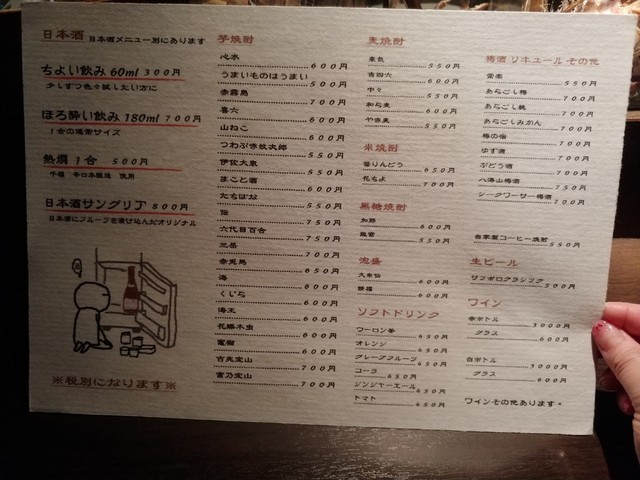 日本酒 日本酒メニュー別にあります
ちょい飲み 60ml 300円
少しずつ色々試したい方に
ほろ酔い飲み 180ml 700円
1合の通常サイズ
熱燗 1合 500円
千福 辛口本醸造 使用
日本酒サングリア 800円
日本酒にフルーツを漬け込んだオリジナル
※税別になります※
芋焼酎
心水 600円
うまいものはうまい 500円
赤霧島 700円
喜六 600円
山ねこ 600円
つわぶき紋次郎 550円
伊佐大泉 550円
まこと酒 600円
たちばな 550円
伝 750円
六代目百合 750円
三岳 700円
赤兎馬 650円
海 600円
くじら 600円
海王 600円
花蝶木虫 600円
電樹 600円
吉兆宝山 700円
富乃宝山 700円
麦焼酎
兼気 550円
吉四六 600円
中々 550円
和ら麦 600円
やき麦 550円
米焼酎
香りんどう 650円
花ちよ 700円
黒糖焼酎
加那 600円
龍宮 550円
泡盛
久米仙 600円
600円
ソフトドリンク
ウーロン茶 450円
オレンジ 450円
グレープフルーツ 450円
コーラ 450円
ジンジャーエール 450円
トマト 450円
梅酒 リキュール その他
550円
あらごし梅 700円
あらごし桃 700円
あらごしみかん 700円
梅の宿 700円
ゆず酒 700円
ぶどう酒 700円
八海山梅酒 750円
シークワーサー梅酒 700円
自家製コーヒー焼酎 550円
生ビール
サッポロクラシック 500円
ワイン
赤ボトル 3000円
グラス 600円
白ボトル 3000円
グラス 600円
ワインその他あります。